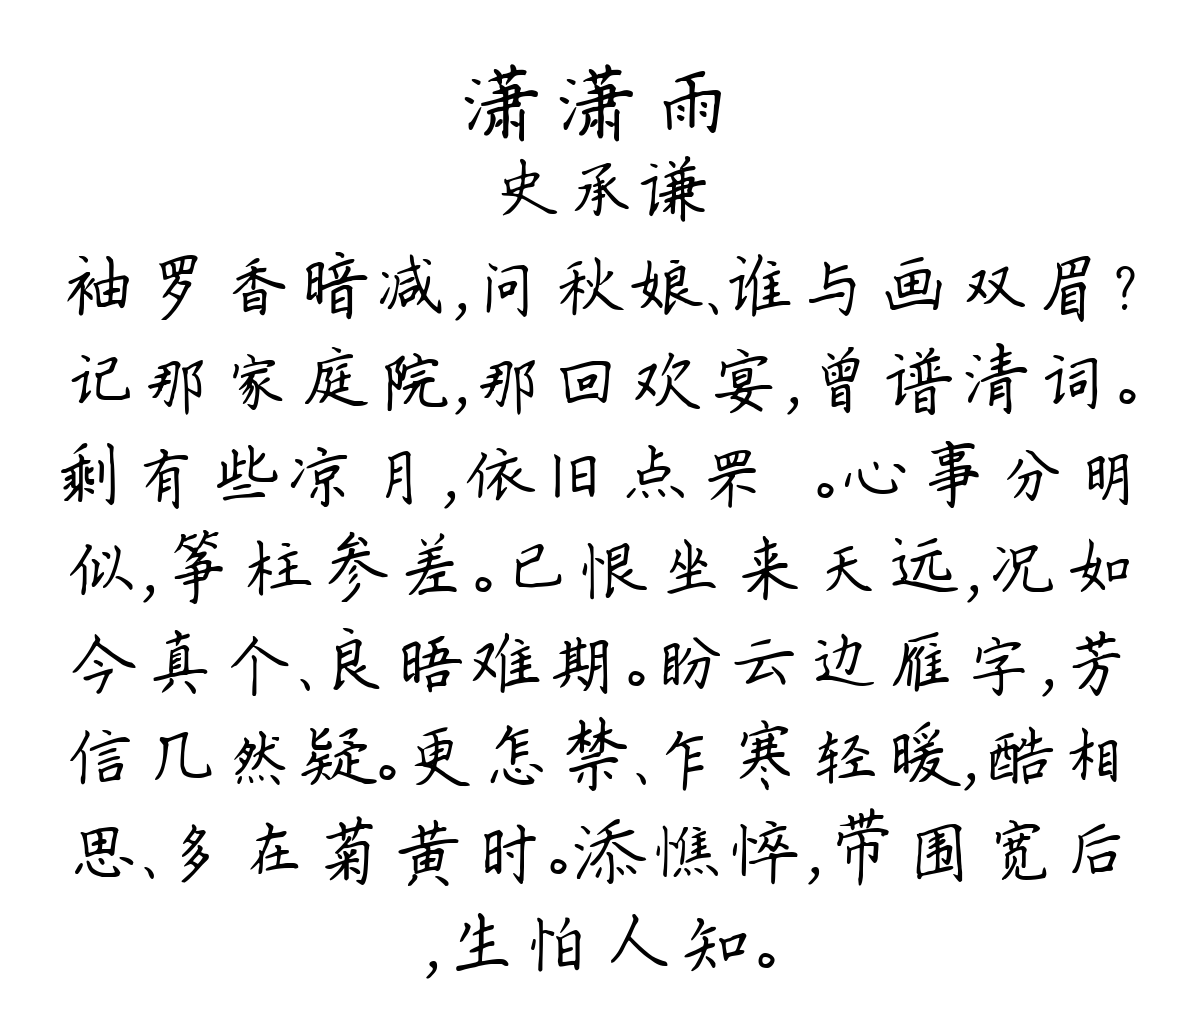 潇潇雨
史承谦
袖罗香暗减,问秋娘、谁与画双眉?
记那家庭院,那回欢宴,曾谱清词。
剩有些凉月,依旧点罘 。心事分明
似,筝柱参差。已恨坐来天远,况如
今真个、良晤难期。盼云边雁字,芳
信几然疑。更怎禁、乍寒轻暖,酷相
思、多在菊黄时。添憔悴,带围宽后
,生怕人知。